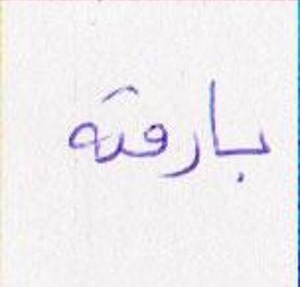 بارقه